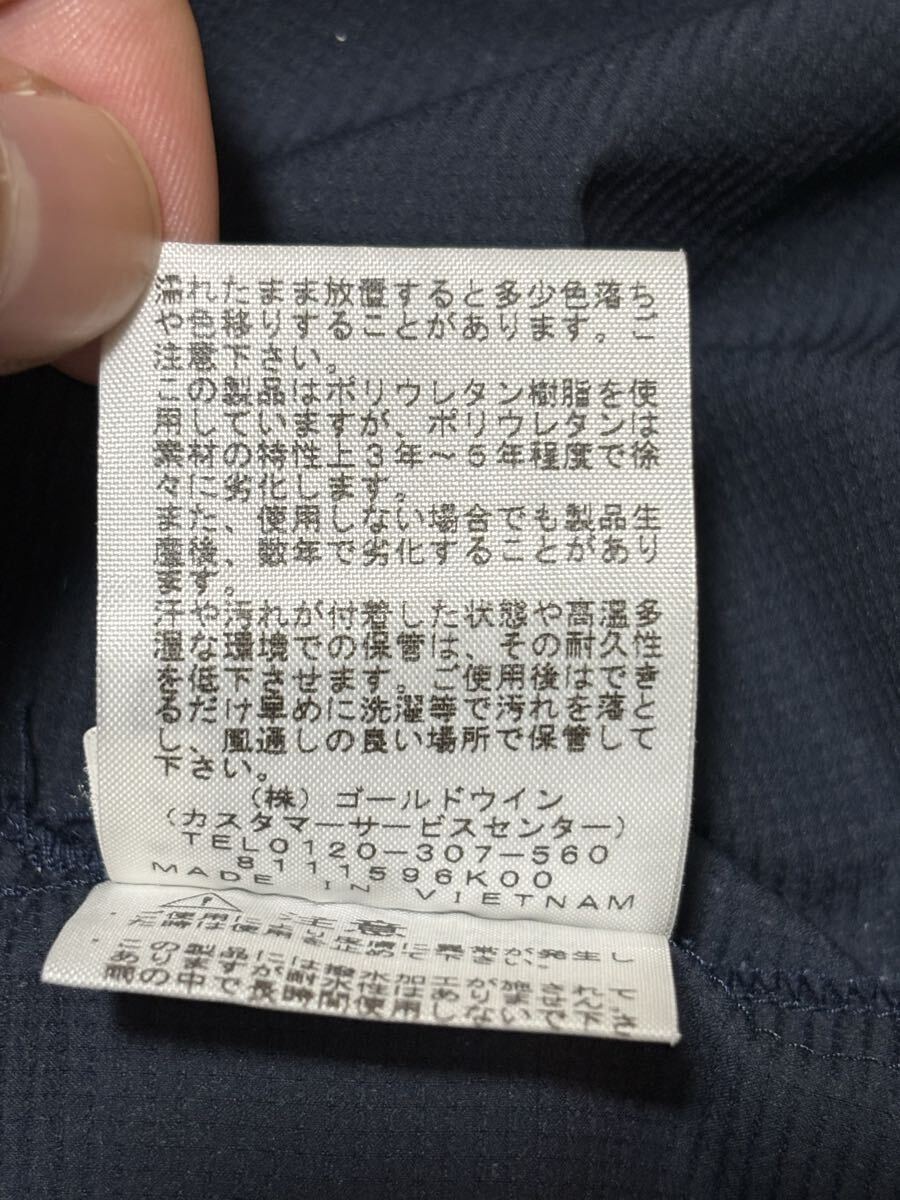 濡れたまま放置すると多少色落ち
や色移りすることがあります。ご
注意下さい。
この製品はポリウレタン樹脂を使
用していますが、ポリウレタンは
素材の特性上3年～5年程度で徐
々に劣化します。
また、使用しない場合でも製品生
産後、数年で劣化することがあり
ます。
汗や汚れが付着した状態や高温多
湿な環境での保管は、その耐久性
を低下させます。ご使用後はでき
るだけ早めに洗濯等で汚れを落と
し、風通しの良い場所で保管して
下さい。
(株) ゴールドウイン
(カスタマーサービスセンター)
TEL0120-307-560
8111596K00
MADE IN VIETNAM
注意